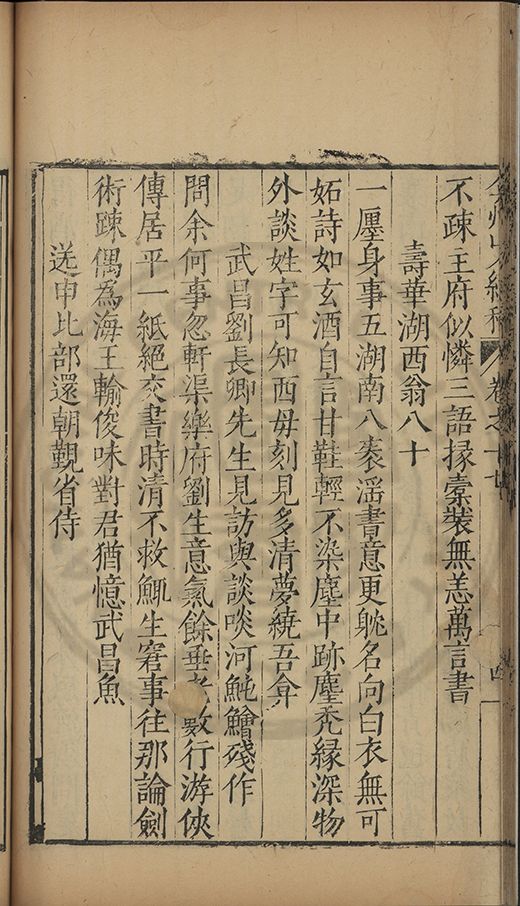 弇州山人續稿 卷之十七 四
不踈王府似憐三語掾橐裝無恙萬言書
壽華湖西翁八十
一廛身事五湖南八袠滛書意更躭名向白衣無可
妬詩如玄酒自言甘鞋輕不染塵中跡麈禿緣深物
外談姓字可知西毋刻見多清夢繞吾弇
武昌劉長卿先生見訪與談啖河魨鱠殘作
問余何事忽軒渠樂府劉生意氣餘垂老數行游俠
傳居平一紙絕交書時清不救鯫生窘事往那論劍
術踈偶為海王輸俊味對君猶憶武昌魚
送申比部還朝覲省侍